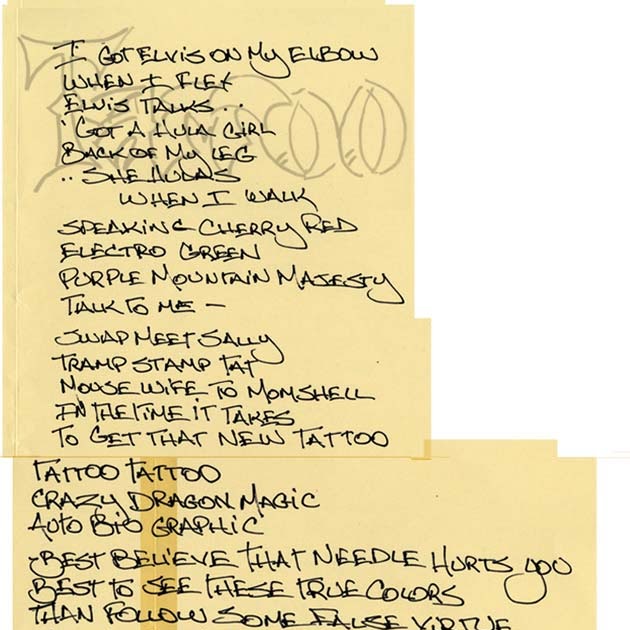 Tattoo
I GOT ELVIS ON MY ELBOW
WHEN I FLEX
ELVIS TALKS . .
'GOT A HULA GIRL
BACK OF MY LEG
.. SHE HULAS
WHEN I WALK
SPEAKING CHERRY RED
ELECTRO GREEN
PURPLE MOUNTAIN MAJESTY
TALK TO ME –
SWAP MEET SALLY
TRAMP STAMP TAT
MOUSEWIFE TO MOMSHELL
IN THE TIME IT TAKES
TO GET THAT NEW TATTOO
TATTOO TATTOO
CRAZY DRAGON MAGIC
AUTO BIO GRAPHIC
-BEST BELIEVE THAT NEEDLE HURTS YOU
BEST TO SEE THESE TRUE COLORS
THAN FOLLOW SOME FALSE VIRTUE